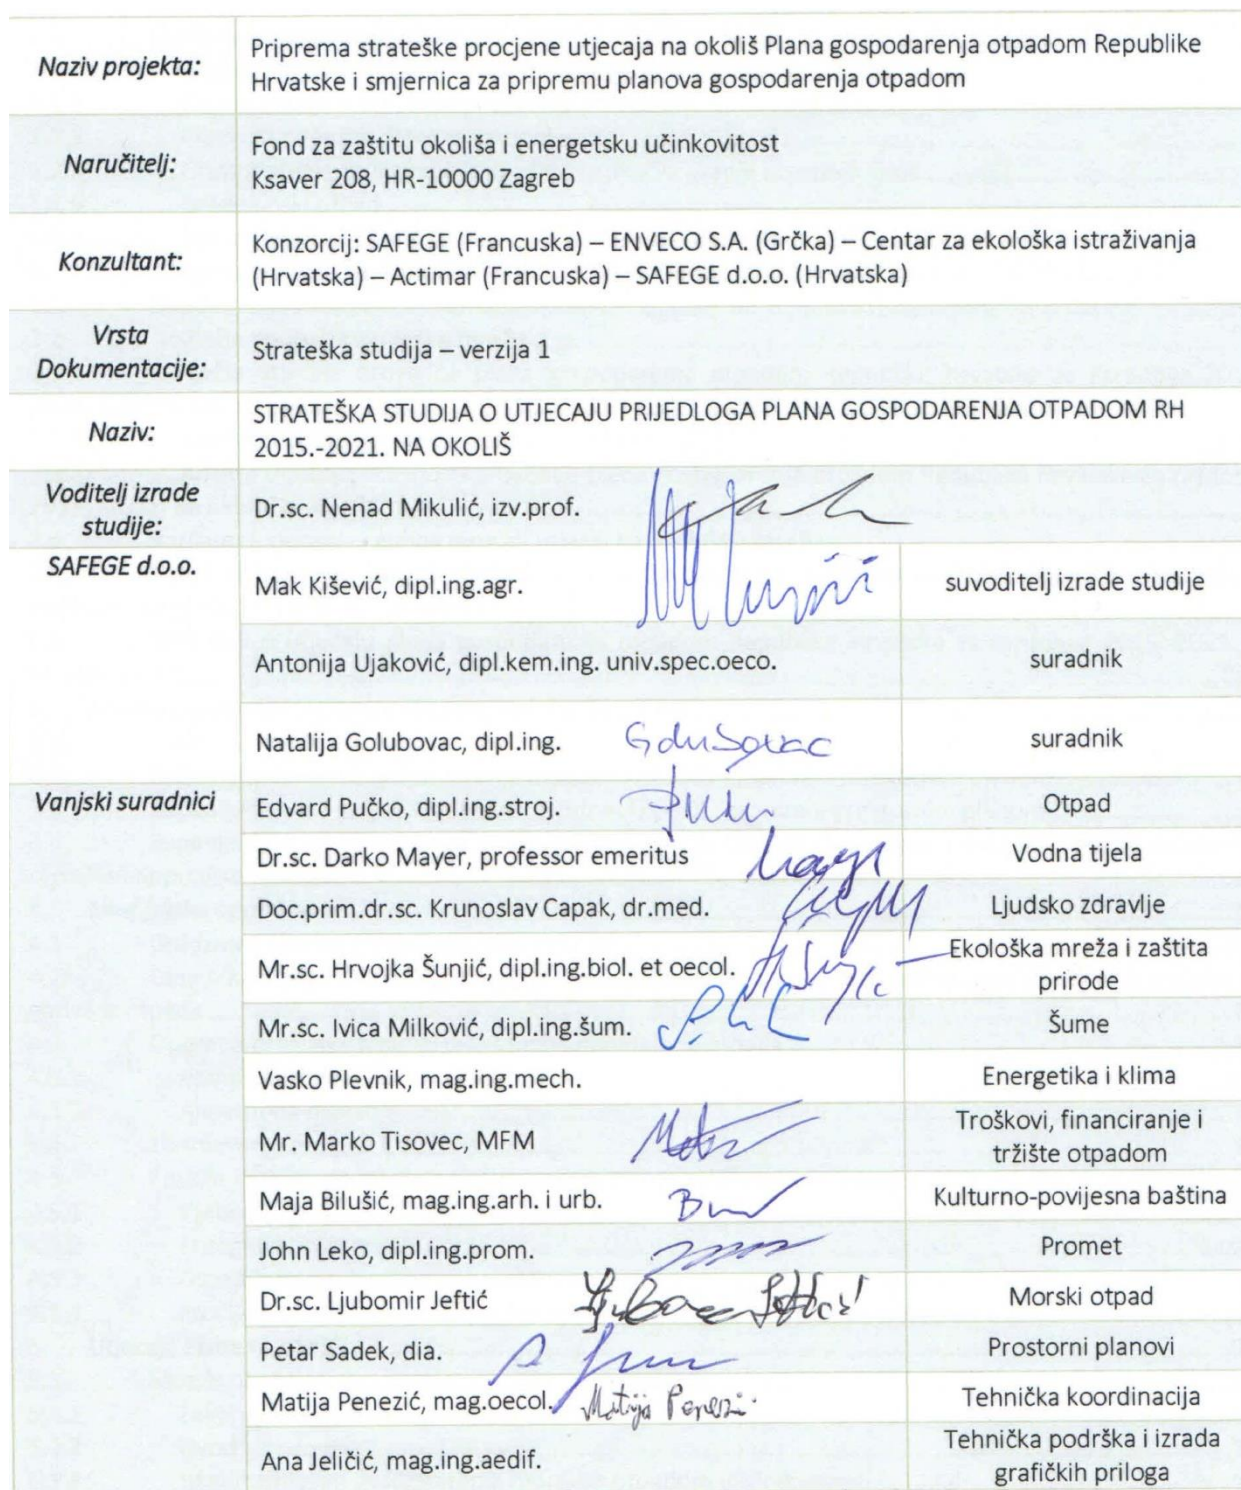 Naziv projekta:
Priprema strateške procjene utjecaja na okoliš Plana gospodarenja otpadom Republike
Hrvatske i smjernica za pripremu planova gospodarenja otpadom
Naručitelj:
Fond za zaštitu okoliša i energetsku učinkovitost
Ksaver 208, HR-10000 Zagreb
Konzultant:
Konzorcij: SAFEGE (Francuska) – ENVECO S.A. (Grčka) – Centar za ekološka istraživanja
(Hrvatska) – Actimar (Francuska) – SAFEGE d.o.o. (Hrvatska)
Vrsta
Dokumentacije:
Strateška studija – verzija 1
Naziv:
STRATEŠKA STUDIJA O UTJECAJU PRIJEDLOGA PLANA GOSPODARENJA OTPADOM RH
2015.-2021. NA OKOLIŠ
Voditelj izrade
studije:
Dr.sc. Nenad Mikulić, izv.prof.
SAFEGE d.o.o.
Mak Kišević, dipl.ing.agr.
suvoditelj izrade studije
Antonija Ujaković, dipl.kem.ing. univ.spec.oeco.
suradnik
Natalija Golubovac, dipl.ing.
Golubovac
suradnik
Vanjski suradnici
Edvard Pučko, dipl.ing.stroj.
Otpad
Dr.sc. Darko Mayer, professor emeritus
Vodna tijela
Doc.prim.dr.sc. Krunoslav Capak, dr.med.
Ljudsko zdravlje
Mr.sc. Hrvojka Šunjić, dipl.ing.biol. et oecol.
Ekološka mreža i zaštita
prirode
Mr.sc. Ivica Milković, dipl.ing.šum.
Šume
Vasko Plevnik, mag.ing.mech.
Energetika i klima
Mr. Marko Tisovec, MFM
Troškovi, financiranje i
tržište otpadom
Maja Bilušić, mag.ing.arh. i urb.
Kulturno-povijesna baština
John Leko, dipl.ing.prom.
Promet
Dr.sc. Ljubomir Jeftić
Morski otpad
Petar Sadek, dia.
Prostorni planovi
Matija Penezić, mag.oecol.
Matija Penezić
Tehnička koordinacija
Ana Jeličić, mag.ing.aedif.
Tehnička podrška i izrada
grafičkih priloga